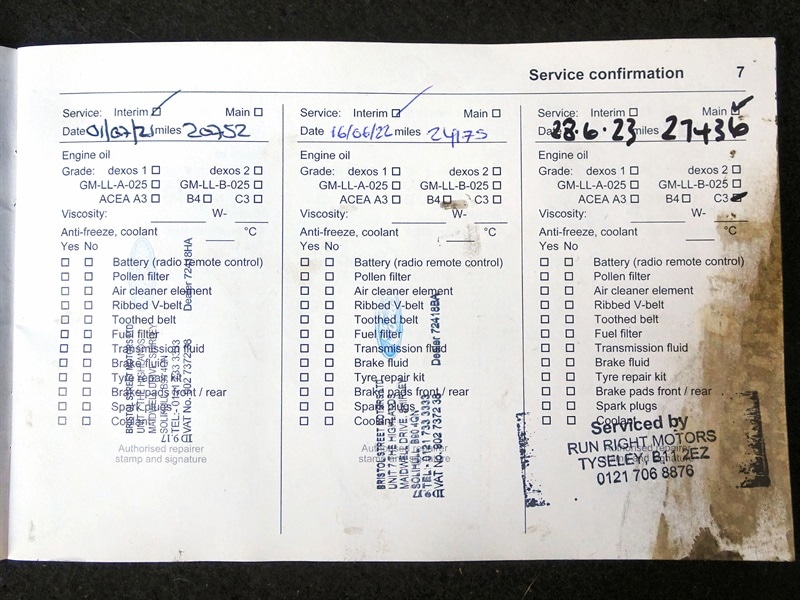 Service confirmation 7
Service: Interim Main
Date 01/07/21 miles 20752
Engine oil
Grade: dexos 1 dexos 2
GM-LL-A-025 GM-LL-B-025
ACEA A3 B4 C3
Viscosity: W-
Anti-freeze, coolant °C
Yes No
Battery (radio remote control)
Pollen filter
Air cleaner element
Ribbed V-belt
Toothed belt
Fuel filter
Transmission fluid
Brake fluid
Tyre repair kit
Brake pads front / rear
Spark plugs
Coolant
Authorised repairer
stamp and signature
BRISTOL STREET MOTORS LTD
MAIDWELL DRIVE, SHIRLEY
SOLIHULL B90 4QN
TEL:- 0121 733 3333
VAT No. 902 7372 38 Dealer 72418HA
Service: Interim Main
Date 16/06/22 miles 24175
Engine oil
Grade: dexos 1 dexos 2
GM-LL-A-025 GM-LL-B-025
ACEA A3 B4 C3
Viscosity: W-
Anti-freeze, coolant °C
Yes No
Battery (radio remote control)
Pollen filter
Air cleaner element
Ribbed V-belt
Toothed belt
Fuel filter
Transmission fluid
Brake fluid
Tyre repair kit
Brake pads front / rear
Spark plugs
Coolant
Authorised repairer
stamp and signature
BRISTOL STREET MOTORS LTD
UNIT 7 THE HIGHLANDS
MAIDWELL DRIVE, SHIRLEY
SOLIHULL B90 4QN
TEL:- 0121 733 3333
VAT No. 902 7372 38 Dealer 72418BA
Service: Interim Main
Date 28.6.23 miles 27436
Engine oil
Grade: dexos 1 dexos 2
GM-LL-A-025 GM-LL-B-025
ACEA A3 B4 C3
Viscosity: W-
Anti-freeze, coolant °C
Yes No
Battery (radio remote control)
Pollen filter
Air cleaner element
Ribbed V-belt
Toothed belt
Fuel filter
Transmission fluid
Brake fluid
Tyre repair kit
Brake pads front / rear
Spark plugs
Coolant
Authorised repairer
stamp and signature
Serviced by
RUN RIGHT MOTORS
TYSELEY, B11 2EZ
0121 706 8876